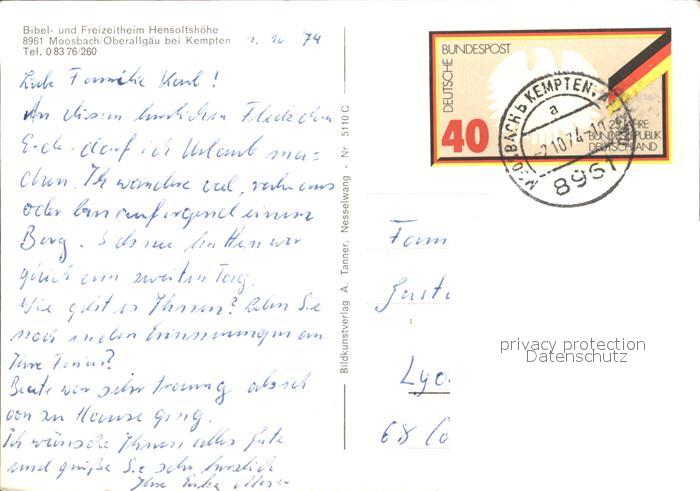 Bibel- und Freizeitheim Hensoltshöhe
8961 Moosbach/Oberallgäu bei Kempten
Tel. 0 83 76/260
1. 10 74
Liebe Familie
An diesem herrlichen Fleckchen
Erde darf ich Urlaub ma=
chen. Ich wandere viel, ruhe aus
oder bin auf irgend einem
Berg. Schnee hatten wir
gleich am zweiten Tag.
Wie geht es Ihnen? Sie
noch in den Erinnerungen an
Ihre Ferien?
Beate war sehr traurig als ich
von zu Hause ging.
Ich wünsche Ihnen alles Gute
und grüße Sie sehr herzlich
Ihre Erika
Bildkunstverlag A. Tanner, Nesselwang - Nr 5110 C
DEUTSCHE BUNDESPOST
40
25 JAHRE
BUNDESREPUBLIK
DEUTSCHLAND
MOOSBACH b KEMPTEN, ALLGÄU
a
-2.10.74-10
8961
Fam
Lyo
68
privacy protection
Datenschutz